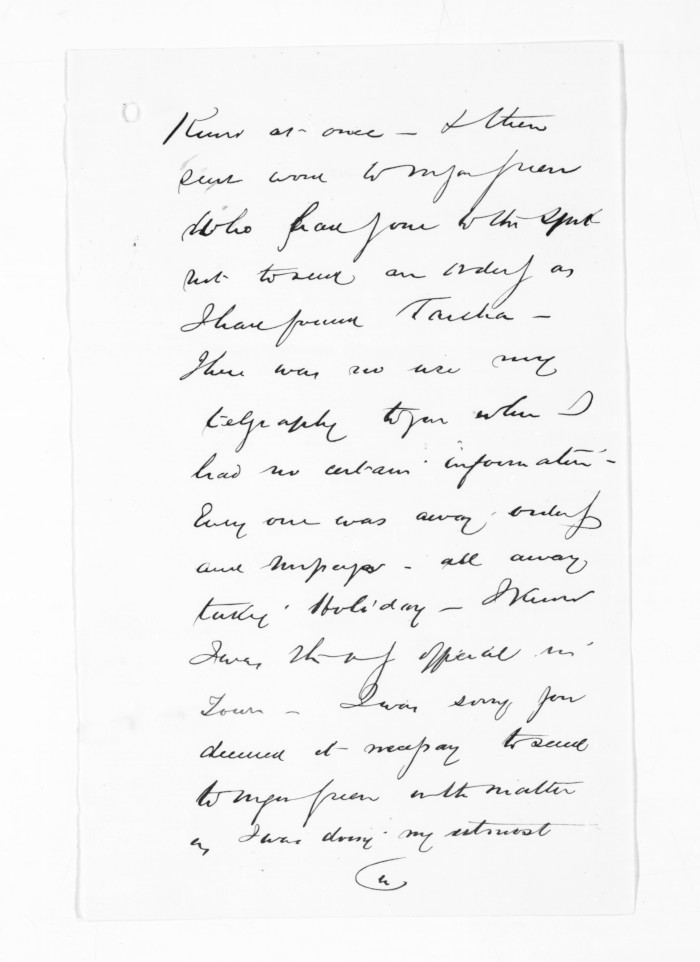 Know at once — & then
sent word to Major Green
who had gone to the spot
not to send an orderly as
I have found Tareha —
There was no use my
telegraphy to you when I
had no certain information —
Every one was away, orderly
and – all away
taking Holiday — I know
I was the only official in
Town — I was sorry you
deemed it necessary to send
to Major Green with matter
as I was doing my utmost